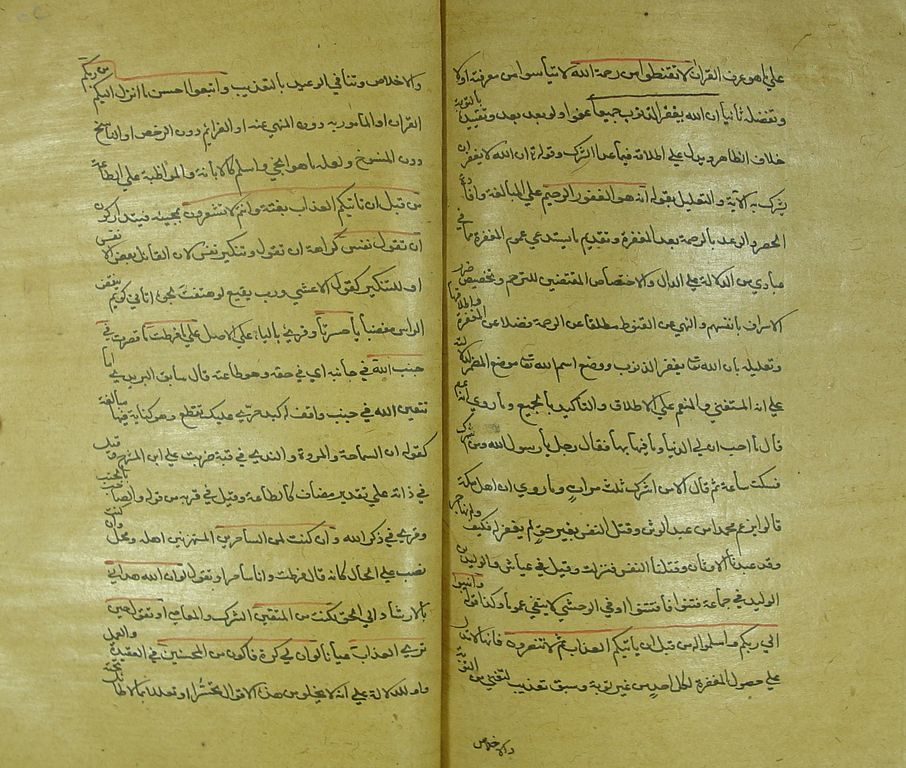 علي ما هو عرف القران لا تقنطوا من رحمة الله لا تيأسوا من مغفرته اولا
وتفضله ثانيا ان الله يغفر الذنوب جميعا عفوا ولو بعد بعد وتقييده بالتوبة
خلاف الظاهر ويدل علي اطلاقه فيما عدا الشرك وقوله ان الله لا يغفر ان
يشرك به الآية والتعليل بقوله انه هو الغفور الرحيم علي المبالغة وافادة
الحصر والوعد بالرحمة بعد المغفرة وتقديم ما يستدعي عموم المغفرة مما في
عبادي من الدلالة علي الذل والاختصاص المقتضيين للترحم وتخصيص ضرر
الاسراف بانفسهم والنهي عن القنوط مطلقا عن الرحمة فضلا عن المغفرة واطلاقها
وتعليله بان الله تعا يغفر الذنوب ووضع اسم الله تعا موضع الضمير لدلالته
علي انه المستغني والمنعم علي الاطلاق والتأكيد بالجميع وما روي انه عم
قال ما احب ان لي الدنيا وما فيها بها فقال رجل يا رسول الله ومن اشرك
فسكت ساعة ثم قال الا من اشرك ثلث مرات وما روي ان اهل مكة
قالوا يزعم محمد ان من عبد الوثن وقتل النفس بغير حق لم يغفر له فكيف ولم نهاجر
وقد عبدنا الاوثان وقتلنا النفس فنزلت وقيل في عياش والوليد بن
الوليد في جماعة فتنوا فافتتنوا او في الوحشي لا ينفي عمومها وكذا قوله وانيبوا
الي ربكم واسلموا له من قبل ان ياتيكم العذاب ثم لا تنصرون فانها لا تدل
علي حصول المغفرة لكل احد من غير توبة وسبق تعذيب لتغني عن التوبة
والاخلاص
والاخلاص وتنافي الوعيد بالتعذيب واتبعوا احسن ما انزل اليكم من ربكم
القران او المأمور به دون المنهي عنه او العزائم دون الرخص او الناسخ
دون المنسوخ ولعله ما هو انجي واسلم كالانابة والمواظبة علي الطاعة
من قبل ان ياتيكم العذاب بغتة وانتم لا تشعرون بمجيئه فيتداركون
ان تقول نفس كراهة ان تقول وتنكير نفس لان القائل بعض الانفس
او للتكثير كقول الاعشي ورب بقيع لو هتفت بجوه اتاني كريم ينفض
الراس مغضبا يا حسرتا وقرئ بالياء علي الاصل علي ما فرطت ما قصرت في
جنب الله في جانبه اي في حقه وهو طاعته قال سابق البربري اما
تتقين الله في جنب وامق له كبد حري عليك تقطع وهو كناية فيها مبالغة
كقوله ان السماحة والمروة والندي في قبة ضربت علي ابن الحشرج وقيل
في ذاته علي تقدير مضاف كالطاعة وقيل في قربه من قوله والصاحب بالجنب
وقرئ في ذكر الله وان كنت لمن الساخرين المستهزئين باهله ومحل وان كنت
نصب علي الحال كانه قال فرطت وانا ساخر او تقول لو ان الله هداني
بالارشاد الي الحق لكنت من المتقين الشرك والمعاصي او تقول حين
تري العذاب عيانا لو ان لي كرة فاكون من المحسنين في العقيدة والعمل
واو للدلالة علي انه لا يخلو من هذه الاقوال تحسرا او تعللا بما لا طائل تحته